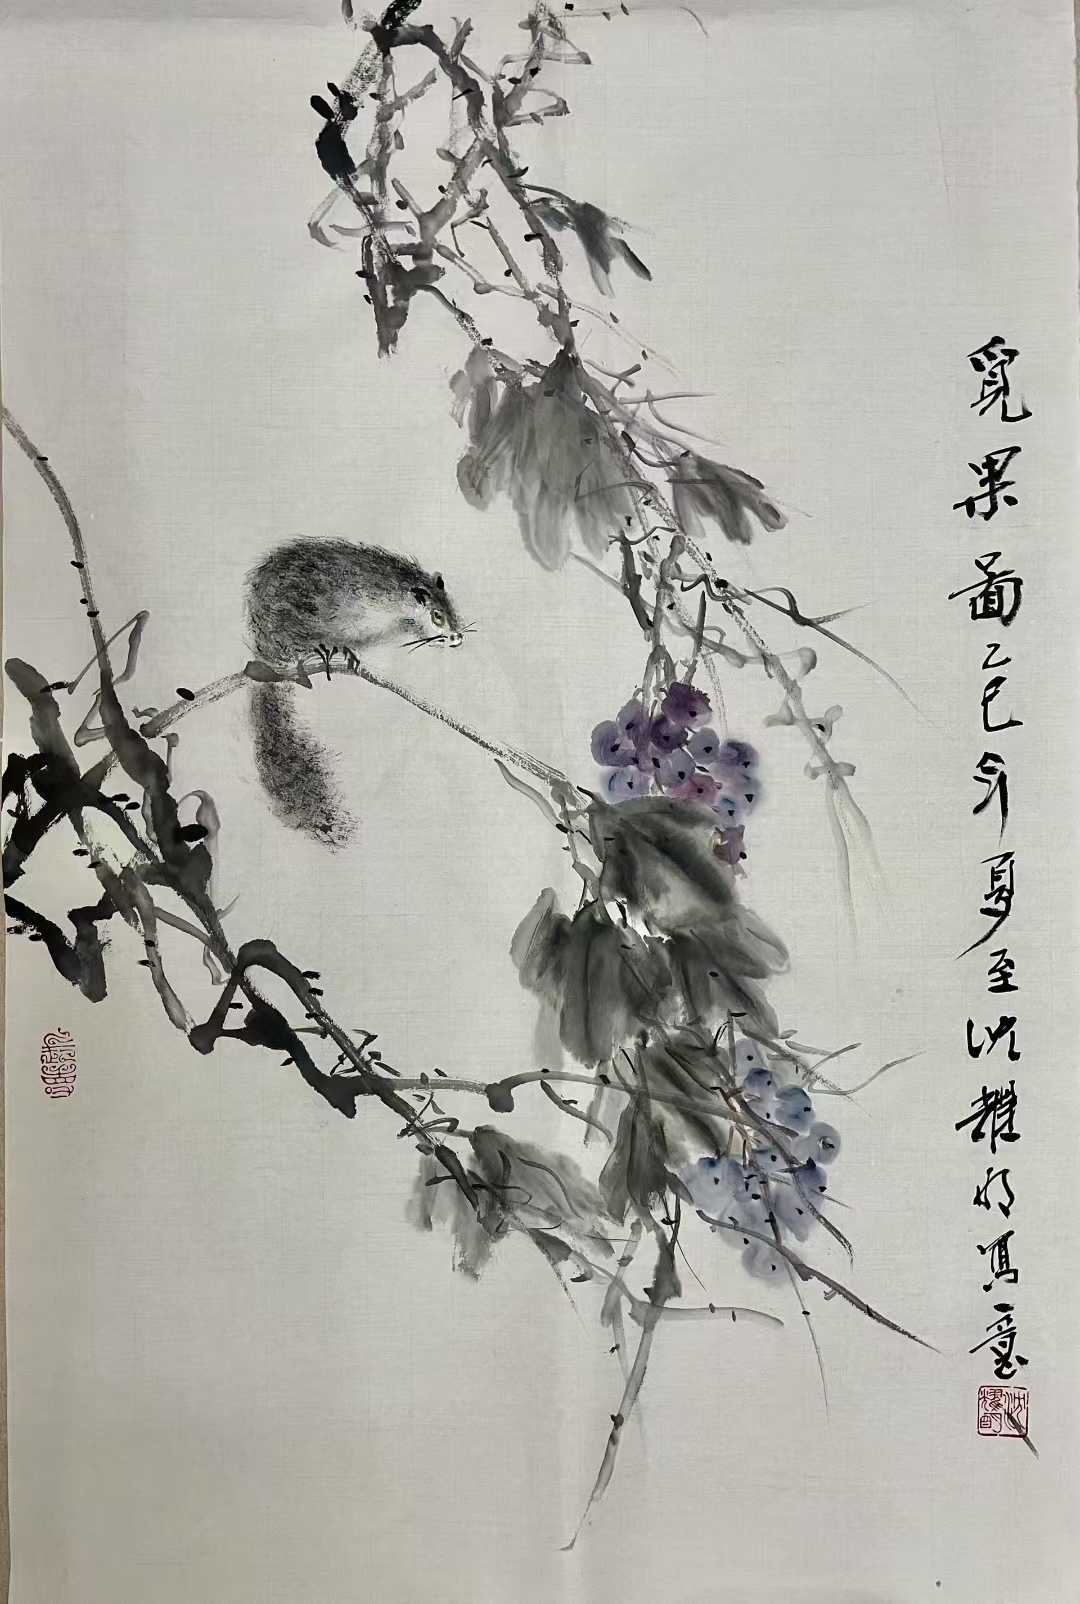 覓果圖乙巳年夏至沈耀明寫意
沈耀明